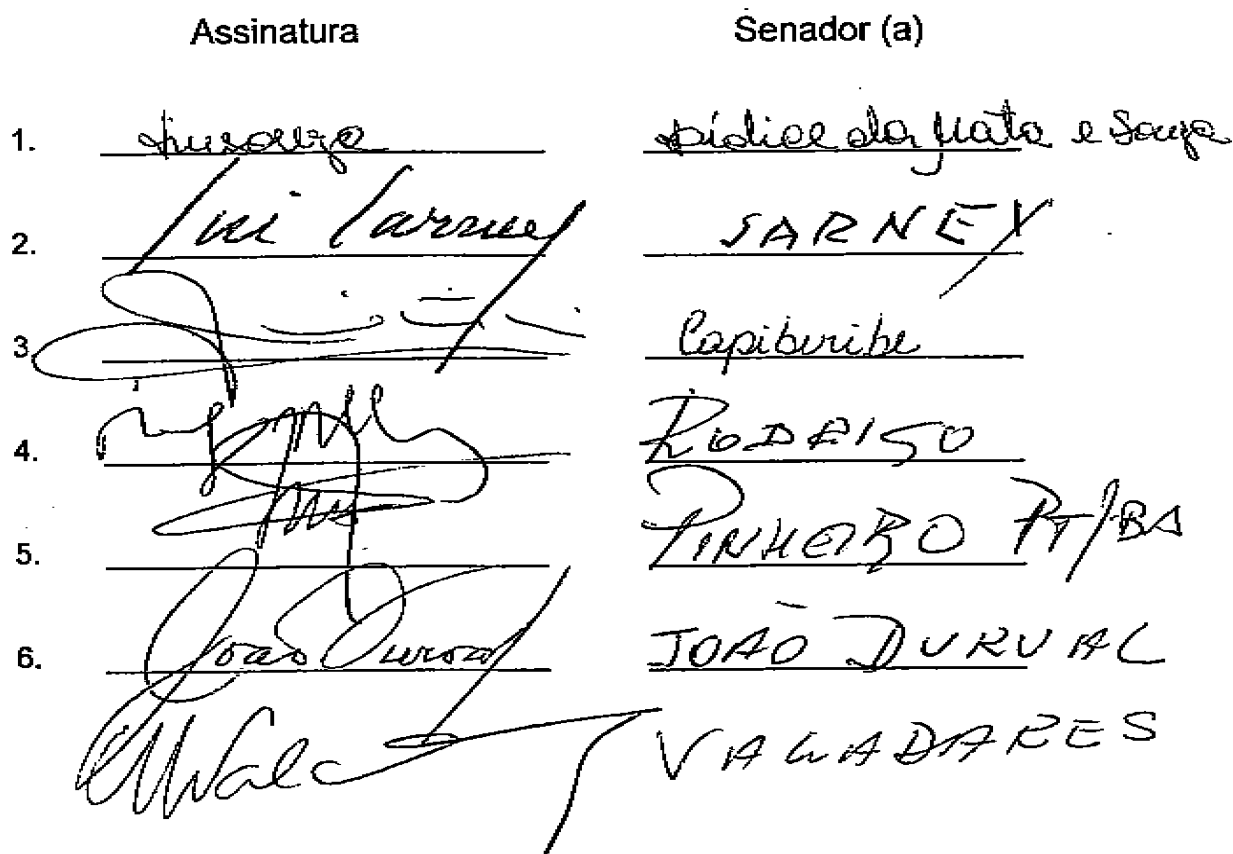 Assinatura Senador (a)
1. Lídice da Mata e Souza
2. SARNEY
3. Capiberibe
4. RODRIGO
5. PINHEIRO PT/BA
6. João Durval JOÃO DURVAL
VALADARES